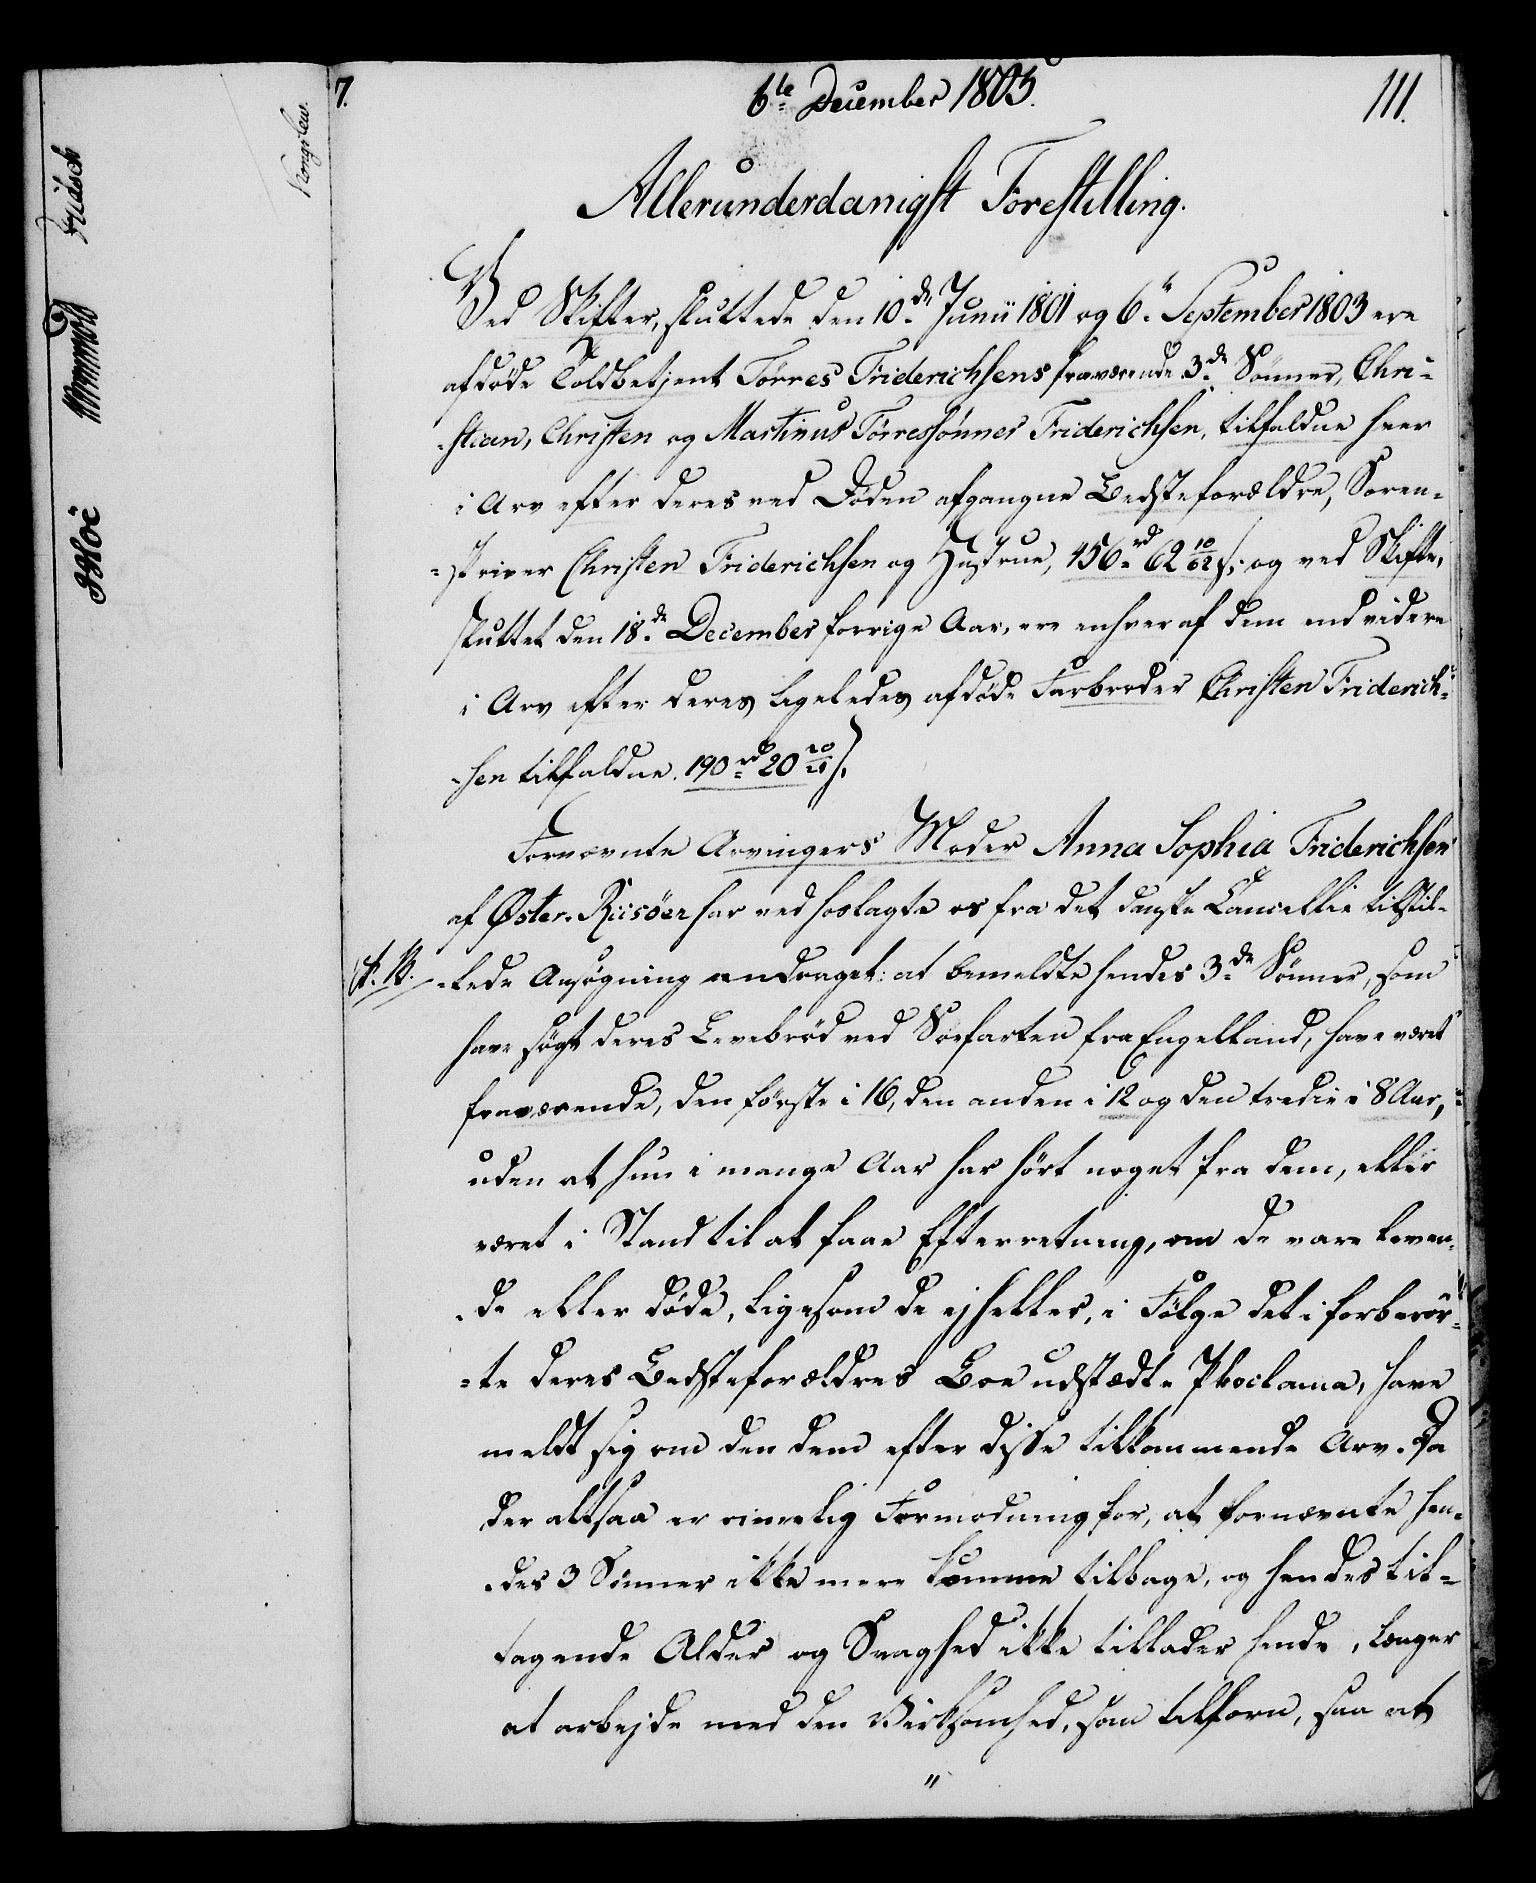 7.
6te December 1805.
111.
Allerunderdanigst Forestilling.
Ved Skifter, sluttede den 10de Junii 1801 og 6te September 1803 ere
afdøde Toldbetjent Törres Friderichsens fraværende 3de Sønner, Chri-
-stian, Christen og Martinus Törressönner Friderichsen, tilfaldne hver
i Arv efter deres ved Døden afgangne Bedsteforældre, Soren-
-skriver Christen Friderichsen og Hustrue, 456 rd 62 s; og ved Skifte,
sluttet den 18de December forrige Aar, ere enhver af dem end videre
i Arv efter deres ligeledes afdøde Farbroder Christen Friderich-
-sen tilfaldne 190 rd 20 s.
Fornævnte Arvingers Moder Anna Sophia Friderichsen
af Øster-Riisöer har ved hoslagte os fra det danske Cancellie tilstil-
-lede Ansøgning andraget: at bemeldte hendes 3de Sønner, som
have søgt deres Levebrød ved Søefarten fra Engelland, have været
fraværende, den første i 16, den anden i 12 og den tredie i 8 Aar,
uden at hun i mange Aar har hört noget fra dem, eller
været i Stand til at faae Efterretning, om de vare leven-
-de eller døde, ligesom de ej heller, i Følge det i forberør-
-te deres Bedsteforældres Boe udstædte Proclama, have
meldt sig om den dem efter disse tilkommende Arv. Da
der altsaa er rimelig Formodning for, at fornævnte hen-
-des 3 Sønner ikke mere komme tilbage, og hendes til-
tagende Alder og Svaghed ikke tillader hende, længer
at arbejde med den Virksomhed, som tilforn, saa at
"